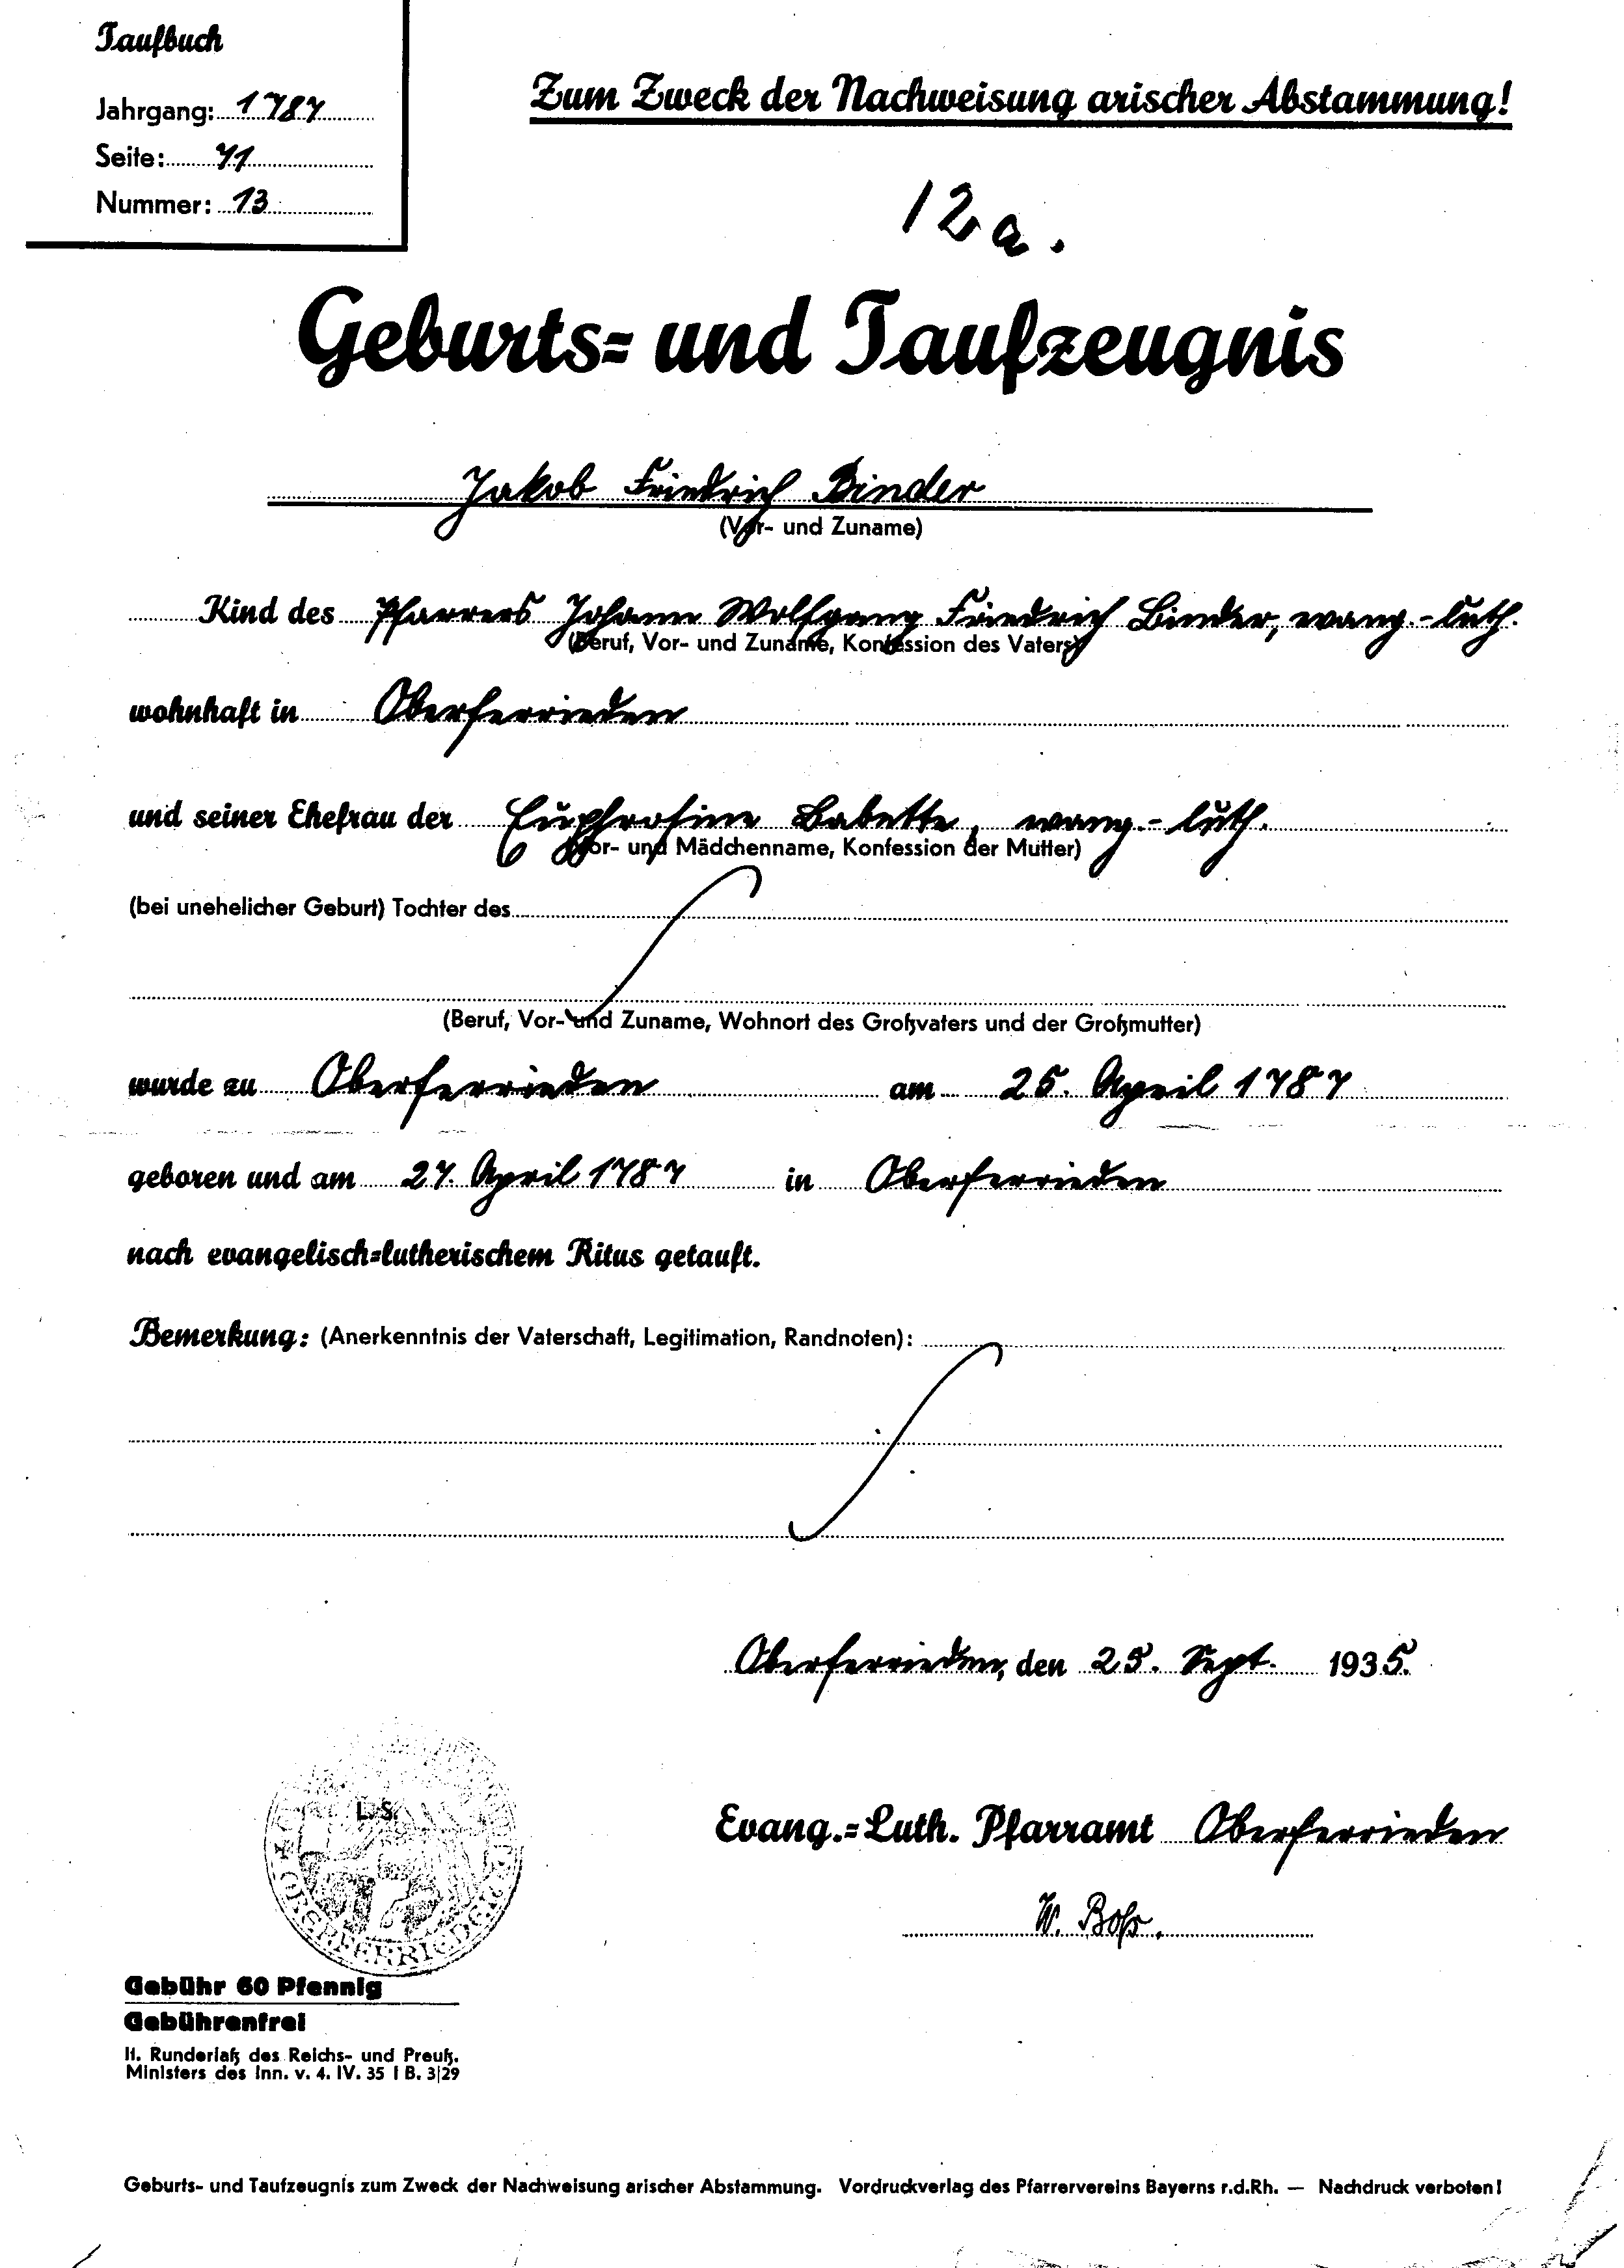 Taufbuch
Jahrgang: 1787
Seite: 71
Nummer: 13
Zum Zweck der Nachweisung arischer Abstammung!
12a.
Geburts= und Taufzeugnis
Jakob Friedrich Binder
(Vor- und Zuname)
Kind des Pfarrers Johann Wolfgang Friedrich Binder, evang.-luth.
(Beruf, Vor- und Zuname, Konfession des Vaters)
wohnhaft in Oberferrieden
und seiner Ehefrau der Euphrosine Babette, evang.-luth.
(Vor- und Mädchenname, Konfession der Mutter)
(bei unehelicher Geburt) Tochter des
(Beruf, Vor- und Zuname, Wohnort des Großvaters und der Großmutter)
wurde zu Oberferrieden am 25. April 1787
geboren und am 27. April 1787 in Oberferrieden
nach evangelisch=lutherischem Ritus getauft.
Bemerkung: (Anerkenntnis der Vaterschaft, Legitimation, Randnoten):
Oberferrieden, den 25. Sept. 1935.
L. S.
OBERFERRIEDEN
Evang.=Luth. Pfarramt Oberferrieden
W. Boß.
Gebühr 60 Pfennig
Gebührenfrei
lt. Runderlaß des Reichs- und Preuß.
Ministers des Inn. v. 4. IV. 35 I B. 3|29
Geburts- und Taufzeugnis zum Zweck der Nachweisung arischer Abstammung. Vordruckverlag des Pfarrervereins Bayerns r.d.Rh. — Nachdruck verboten!